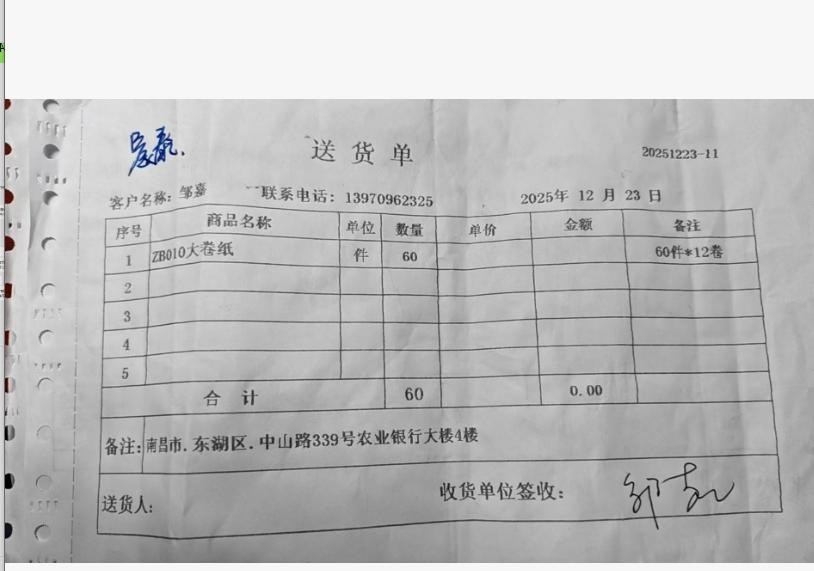 送货单
20251223-11
客户名称：邹嘉 联系电话：13970962325 2025年 12 月 23 日
序号 商品名称 单位 数量 单价 金额 备注
1 ZB010大卷纸 件 60 60件*12卷
2
3
4
5
合 计 60 0.00
备注：南昌市．东湖区．中山路339号农业银行大楼4楼
送货人： 收货单位签收：